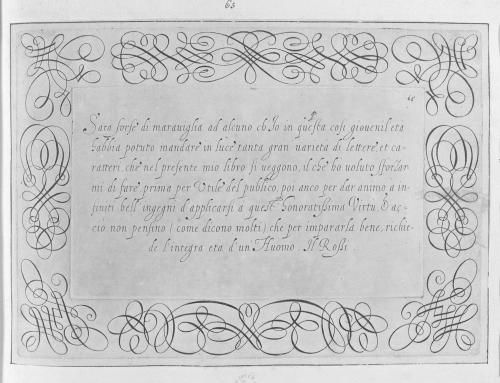 63
Sara forse di marauiglia ad alcuno ch Io in questa cosi giouenil eta
habbia potuto mandare in luce tanta gran uarieta di lettere, et ca-
ratteri, che nel presente mio libro si ueggono, il che ho uoluto sforzar
mi di fare prima per Utile del publico, poi anco per dar animo a in-
finiti bell' ingegni d'applicarsi a questa honoratissima Virtu,
cio non pensino (come dicono molti) che per impararla bene, richie-
de l'integra eta d'un Huomo. Il Rossi